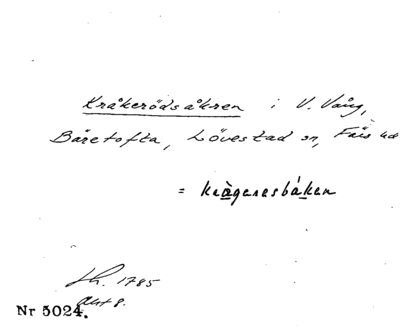 Kråkerödsåkren i V. Vång,
Båretofta, Lövestad sn, Färs hd
= krågeresbåken
Lh. 1785
Akt 8.
Nr 5024.